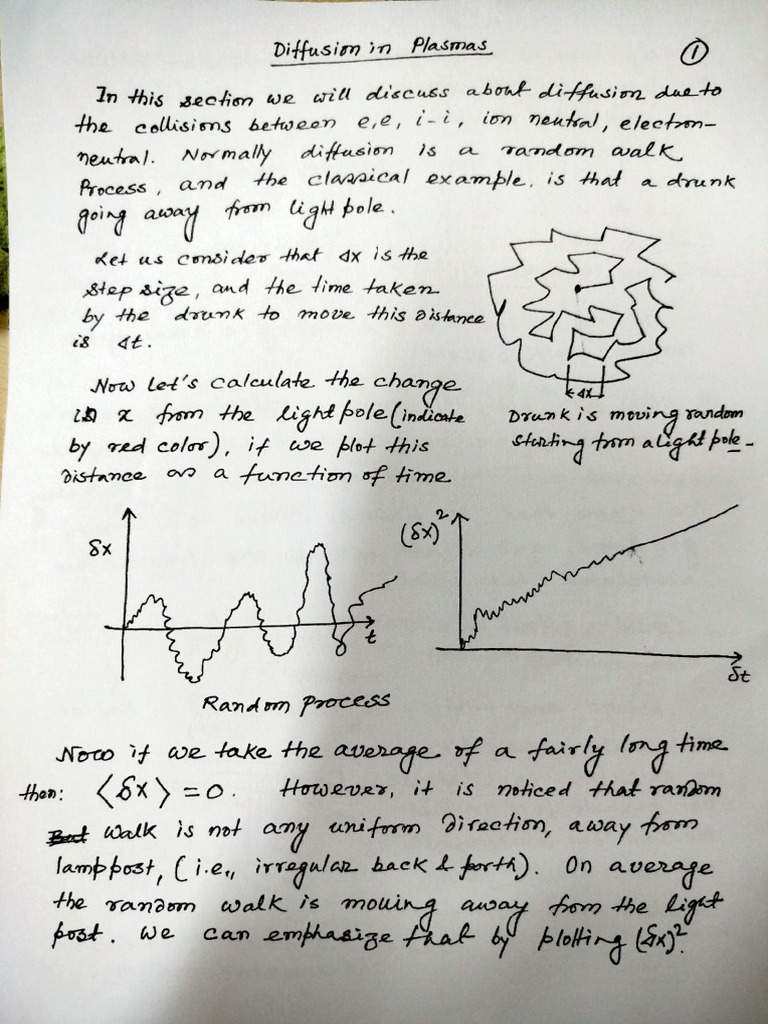 Diffusion in Plasmas
1
In this section we will discuss about diffusion due to
the collisions between e,e, i-i, ion neutral, electron-
neutral. Normally diffusion is a random walk
Process, and the classical example. is that a drunk
going away from light pole.
Let us consider that Δx is the
step size, and the time taken
by the drunk to move this distance
is Δt.
Δx
Drunk is moving random
starting from a light pole-
Now let's calculate the change
in x from the light pole (indicate
by red color), if we plot this
distance as a function of time
δx
t
Random process
(δx)²
δt
Now if we take the average of a fairly long time
then: ⟨δx⟩ = 0. However, it is noticed that random
But walk is not any uniform direction, away from
lamppost, (i.e., irregular back & forth). On average
the random walk is moving away from the light
post. We can emphasize that by plotting (δx)².